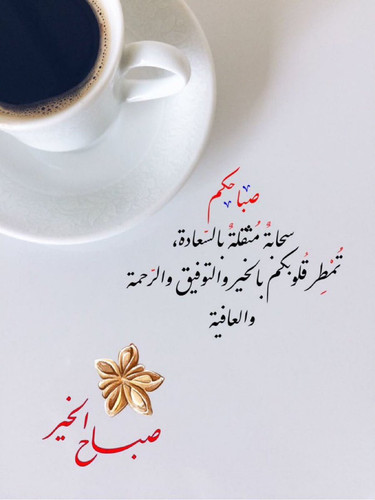 صباحكم
سحابةٌ مُثقلةٌ بالسّعادة،
تُمْطِر قُلوبكم بالخير والتوفيق والرّحمة
والعافية
صباح الخير